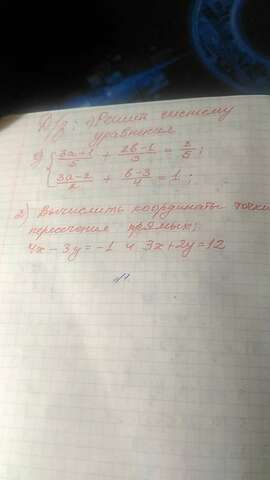 Д/з: 1) Решить систему
уравнения
a) { (3a+1)/5 + (2b-1)/3 = 2/5;
(3a-2)/2 + (b-3)/4 = 1;
2) Вычислить координаты точки
пересечения прямых;
4x - 3y = -1 и 3x + 2y = 12